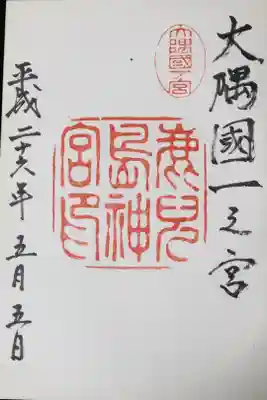 大隅國一之宮
大隅國一宮
鹿兒
島神
宮印
平成二十六年 五月五日